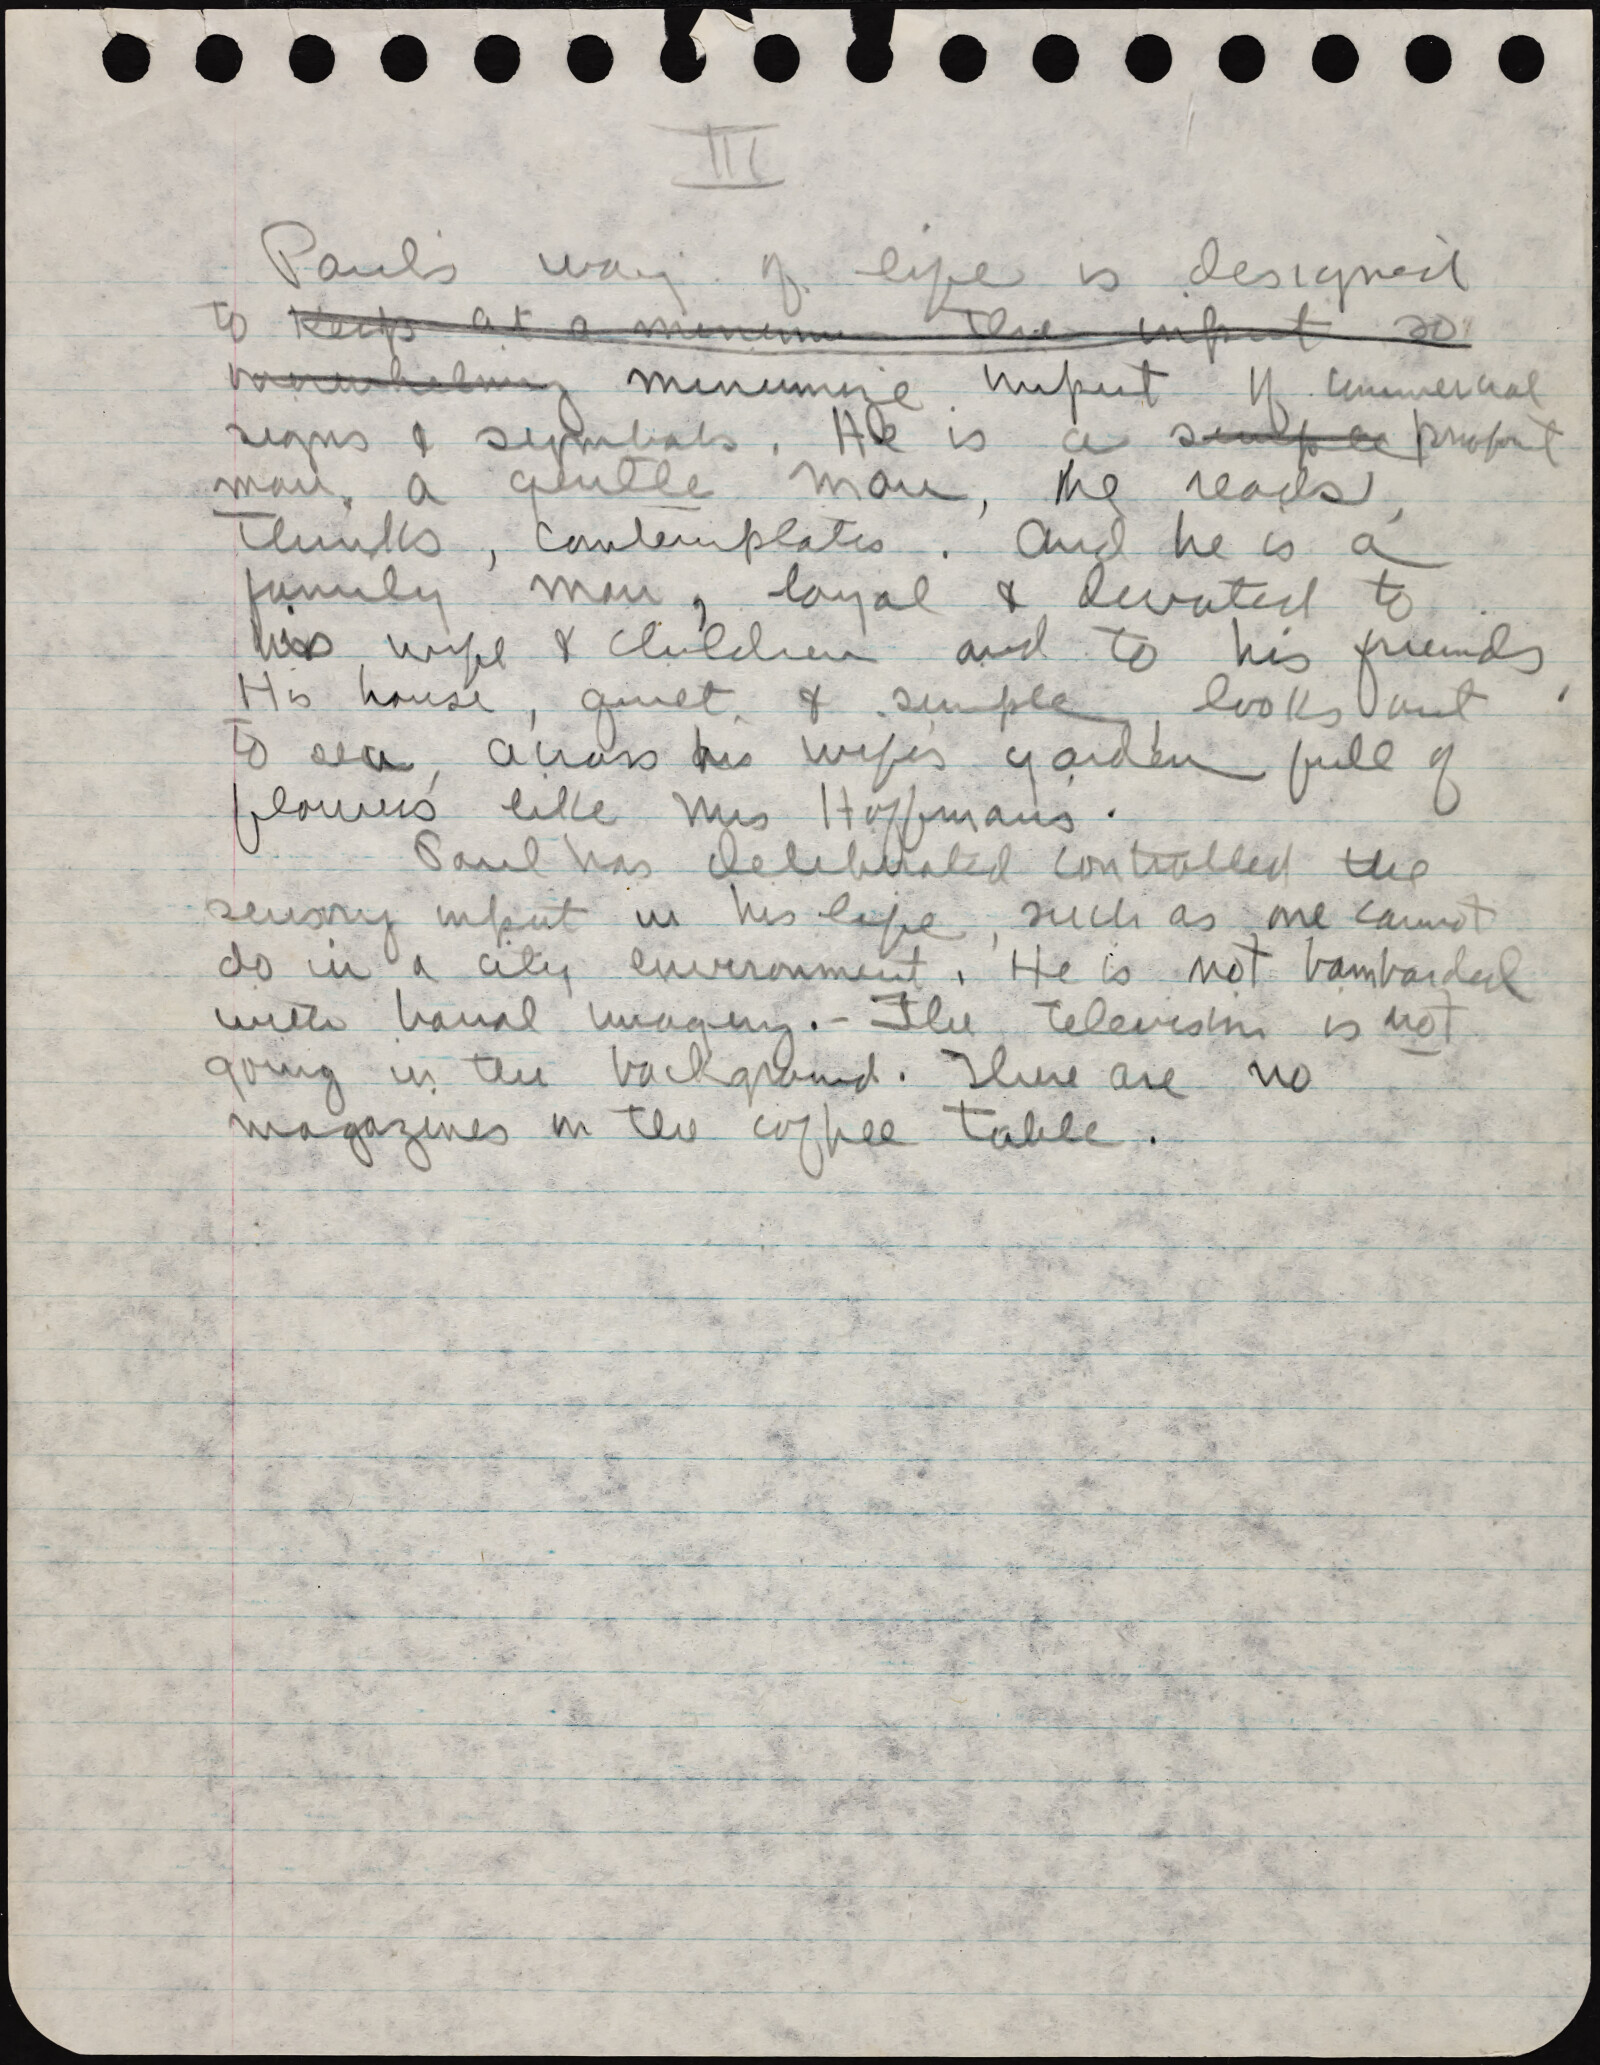 III
Paul's way of life is designed
to keep at a minimum the input so
overwhelming minimize input of commercial
signs & symbols. He is a simple private
man, a gentle man, he reads,
thinks, contemplates. And he is a
family man, loyal & devoted to
his wife & children and to his friends.
His house, quiet & simple, looks out
to sea, across his wife's garden full of
flowers like Mrs Hoffman's.
Paul has deliberated controlled the
sensory input in his life, such as one cannot
do in a city environment. He is not bambarded
with banal imagery. - The television is not
going in the background. There are no
magazines on the coffee table.